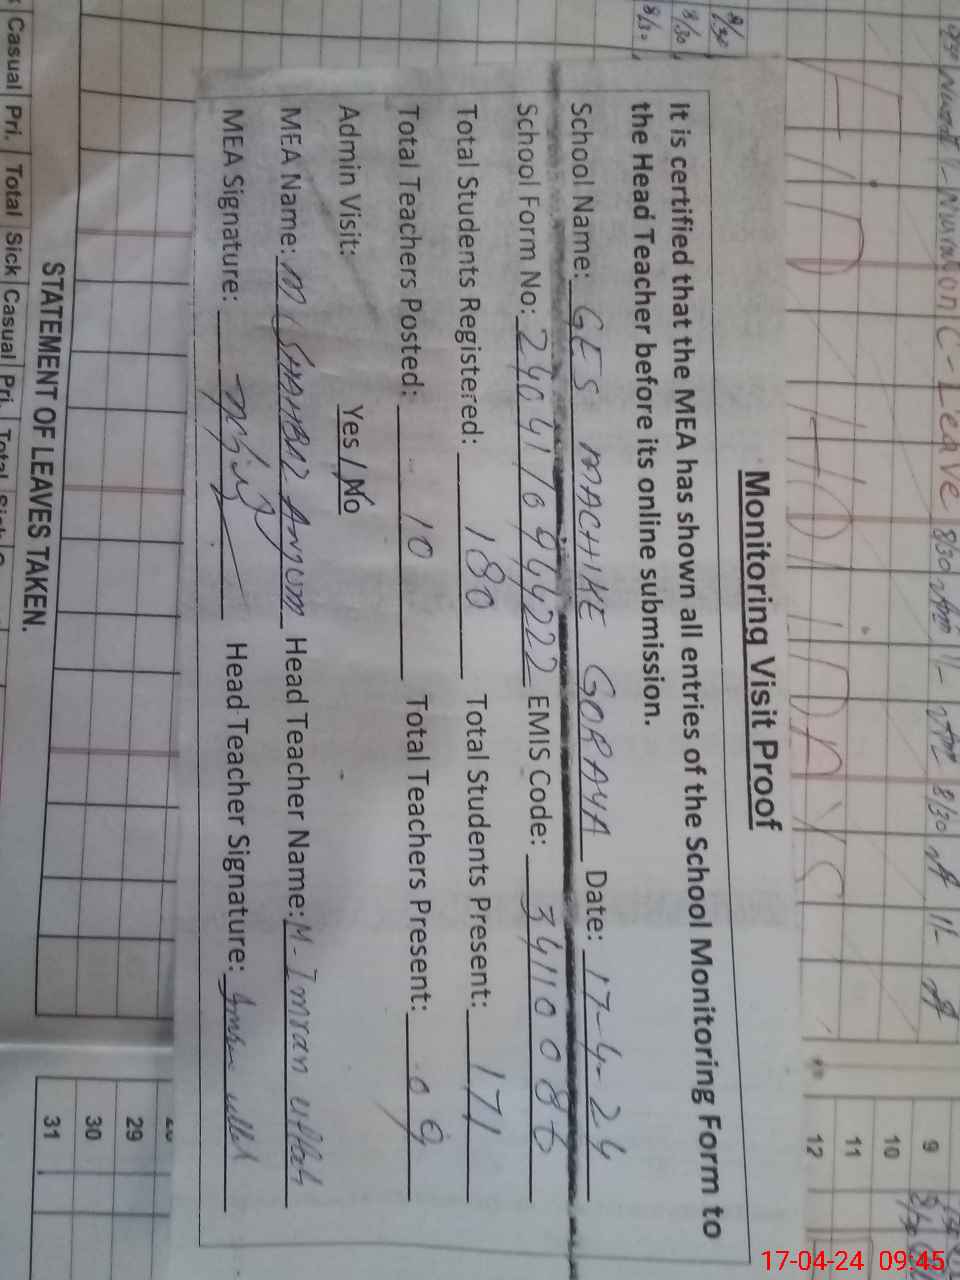 Monitoring Visit Proof
It is certified that the MEA has shown all entries of the School Monitoring Form to
the Head Teacher before its online submission.
School Name: GES MACHIKE GORAYA Date: 17-4-24
School Form No: EMIS Code: 34110086
Total Students Registered: 180 Total Students Present: 171
Total Teachers Posted: 10 Total Teachers Present: 09
Admin Visit: Yes / No
MEA Name: M SHAHBAZ Anjum Head Teacher Name: M-Imran ullah
MEA Signature: Head Teacher Signature: Imran ullah
STATEMENT OF LEAVES TAKEN.
Casual Pri. Total Sick Casual Pri. Total
C-Leave
HOLIDAYS
9
10
11
12
29
30
31
17-04-24 09:45